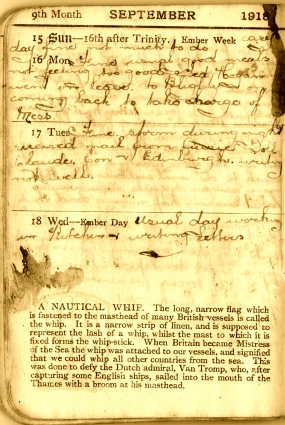 9th Month SEPTEMBER 1918
15 SUN—16th after Trinity. Ember Week
day fine not much to do
16 Mon Fine usual good meals
not feeling too good
went leave to
coming back to take charge of
Mess.
17 Tues Fine storm during night
received mail from
Claude, Con & Edinburgh. writing
18 Wed—Ember Day usual day working
in Kitchen & writing letters
A NAUTICAL WHIP. The long, narrow flag which
is fastened to the masthead of many British vessels is called
the whip. It is a narrow strip of linen, and is supposed to
represent the lash of a whip, whilst the mast to which it is
fixed forms the whip-stick. When Britain became Mistress
of the Sea the whip was attached to our vessels, and signified
that we could whip all other countries from the sea. This
was done to defy the Dutch admiral, Van Tromp, who, after
capturing some English ships, sailed into the mouth of the
Thames with a broom at his masthead.